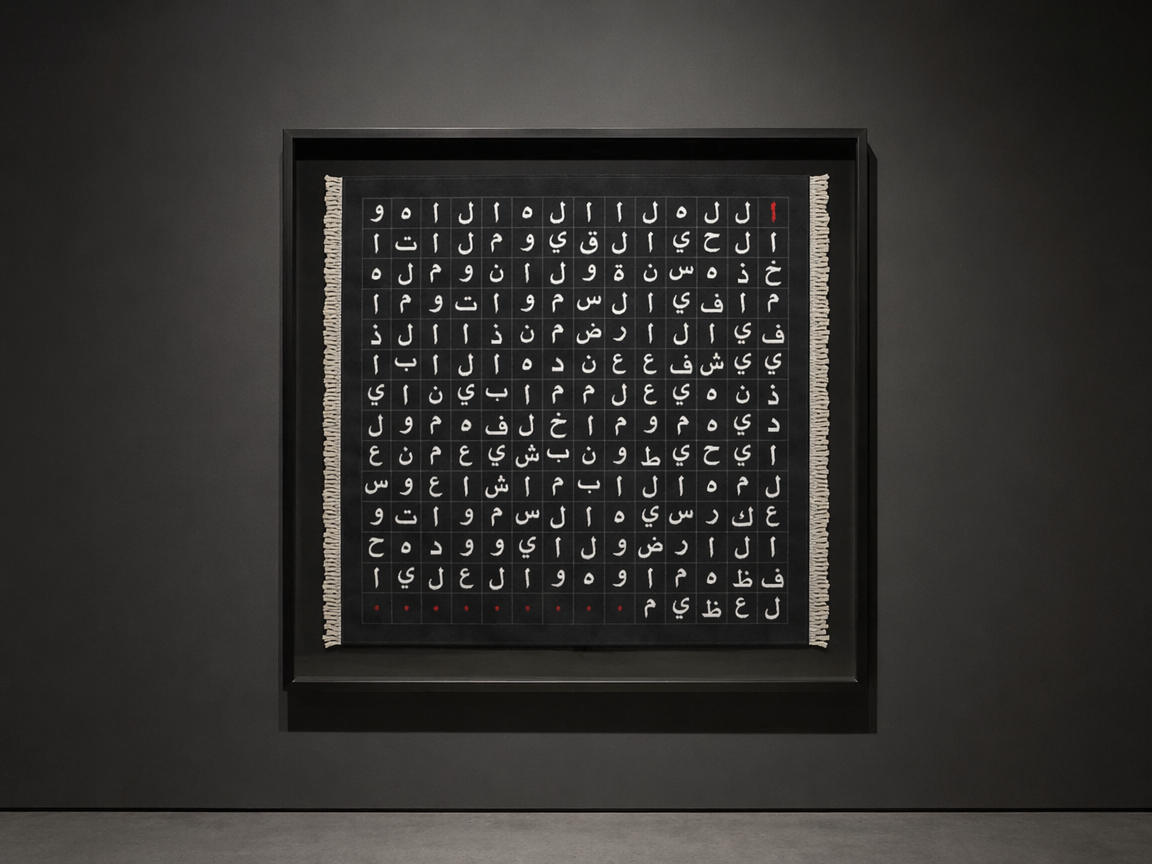 ا ل ل ه ل ا ا ل ه ا ل ا ه و
ا ل ح ي ا ل ق ي و م ل ا ت ا
خ ذ ه س ن ة و ل ا ن و م ل ه
م ا ف ي ا ل س م و ا ت و م ا
ف ي ا ل ا ر ض م ن ذ ا ا ل ذ
ي ي ش ف ع ع ن د ه ا ل ا ب ا
ذ ن ه ي ع ل م م ا ب ي ن ا ي
د ي ه م و م ا خ ل ف ه م و ل
ا ي ح ي ط و ن ب ش ي ع م ن ع
ل م ه ا ل ا ب م ا ش ا ع و س
ع ك ر س ي ه ا ل س م و ا ت و
ا ل ا ر ض و ل ا ي و و د ه ح
ف ظ ه م ا و ه و ا ل ع ل ي ا
ل ع ظ ي م · · · · · · · · ·